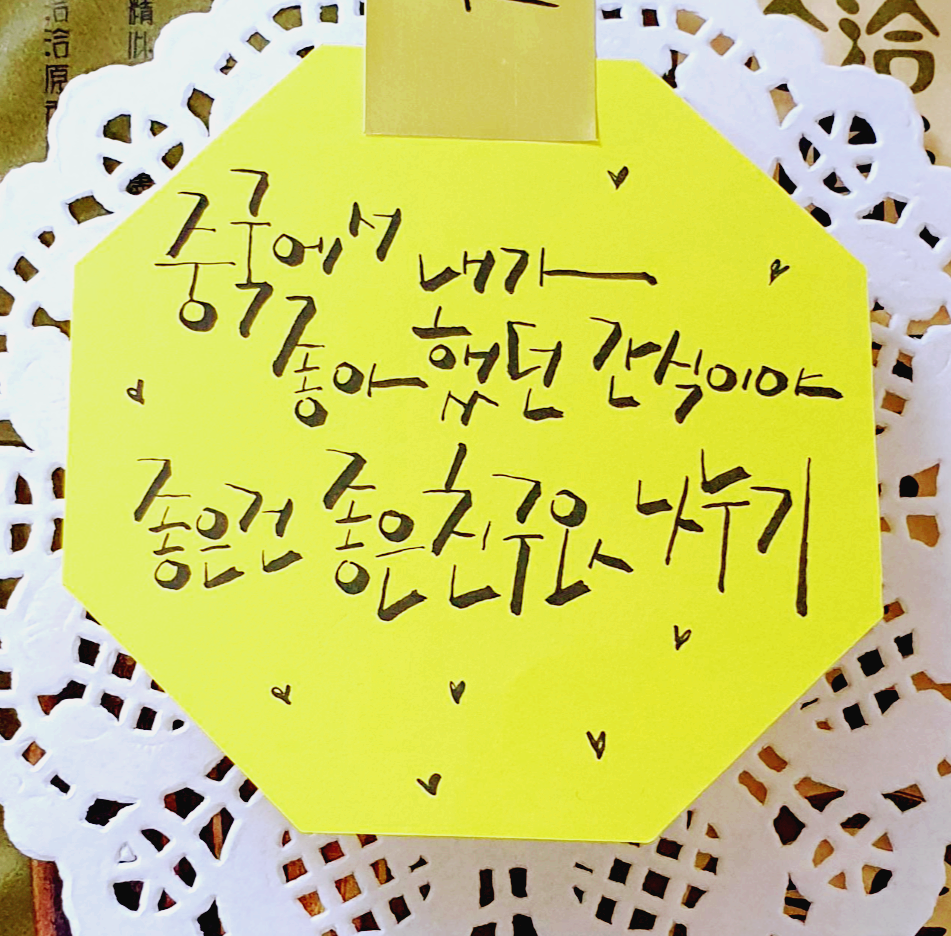 洽洽原
精
洽
중국에서 내가
좋아했던 간식이야
좋은건 좋은친구와 나누기